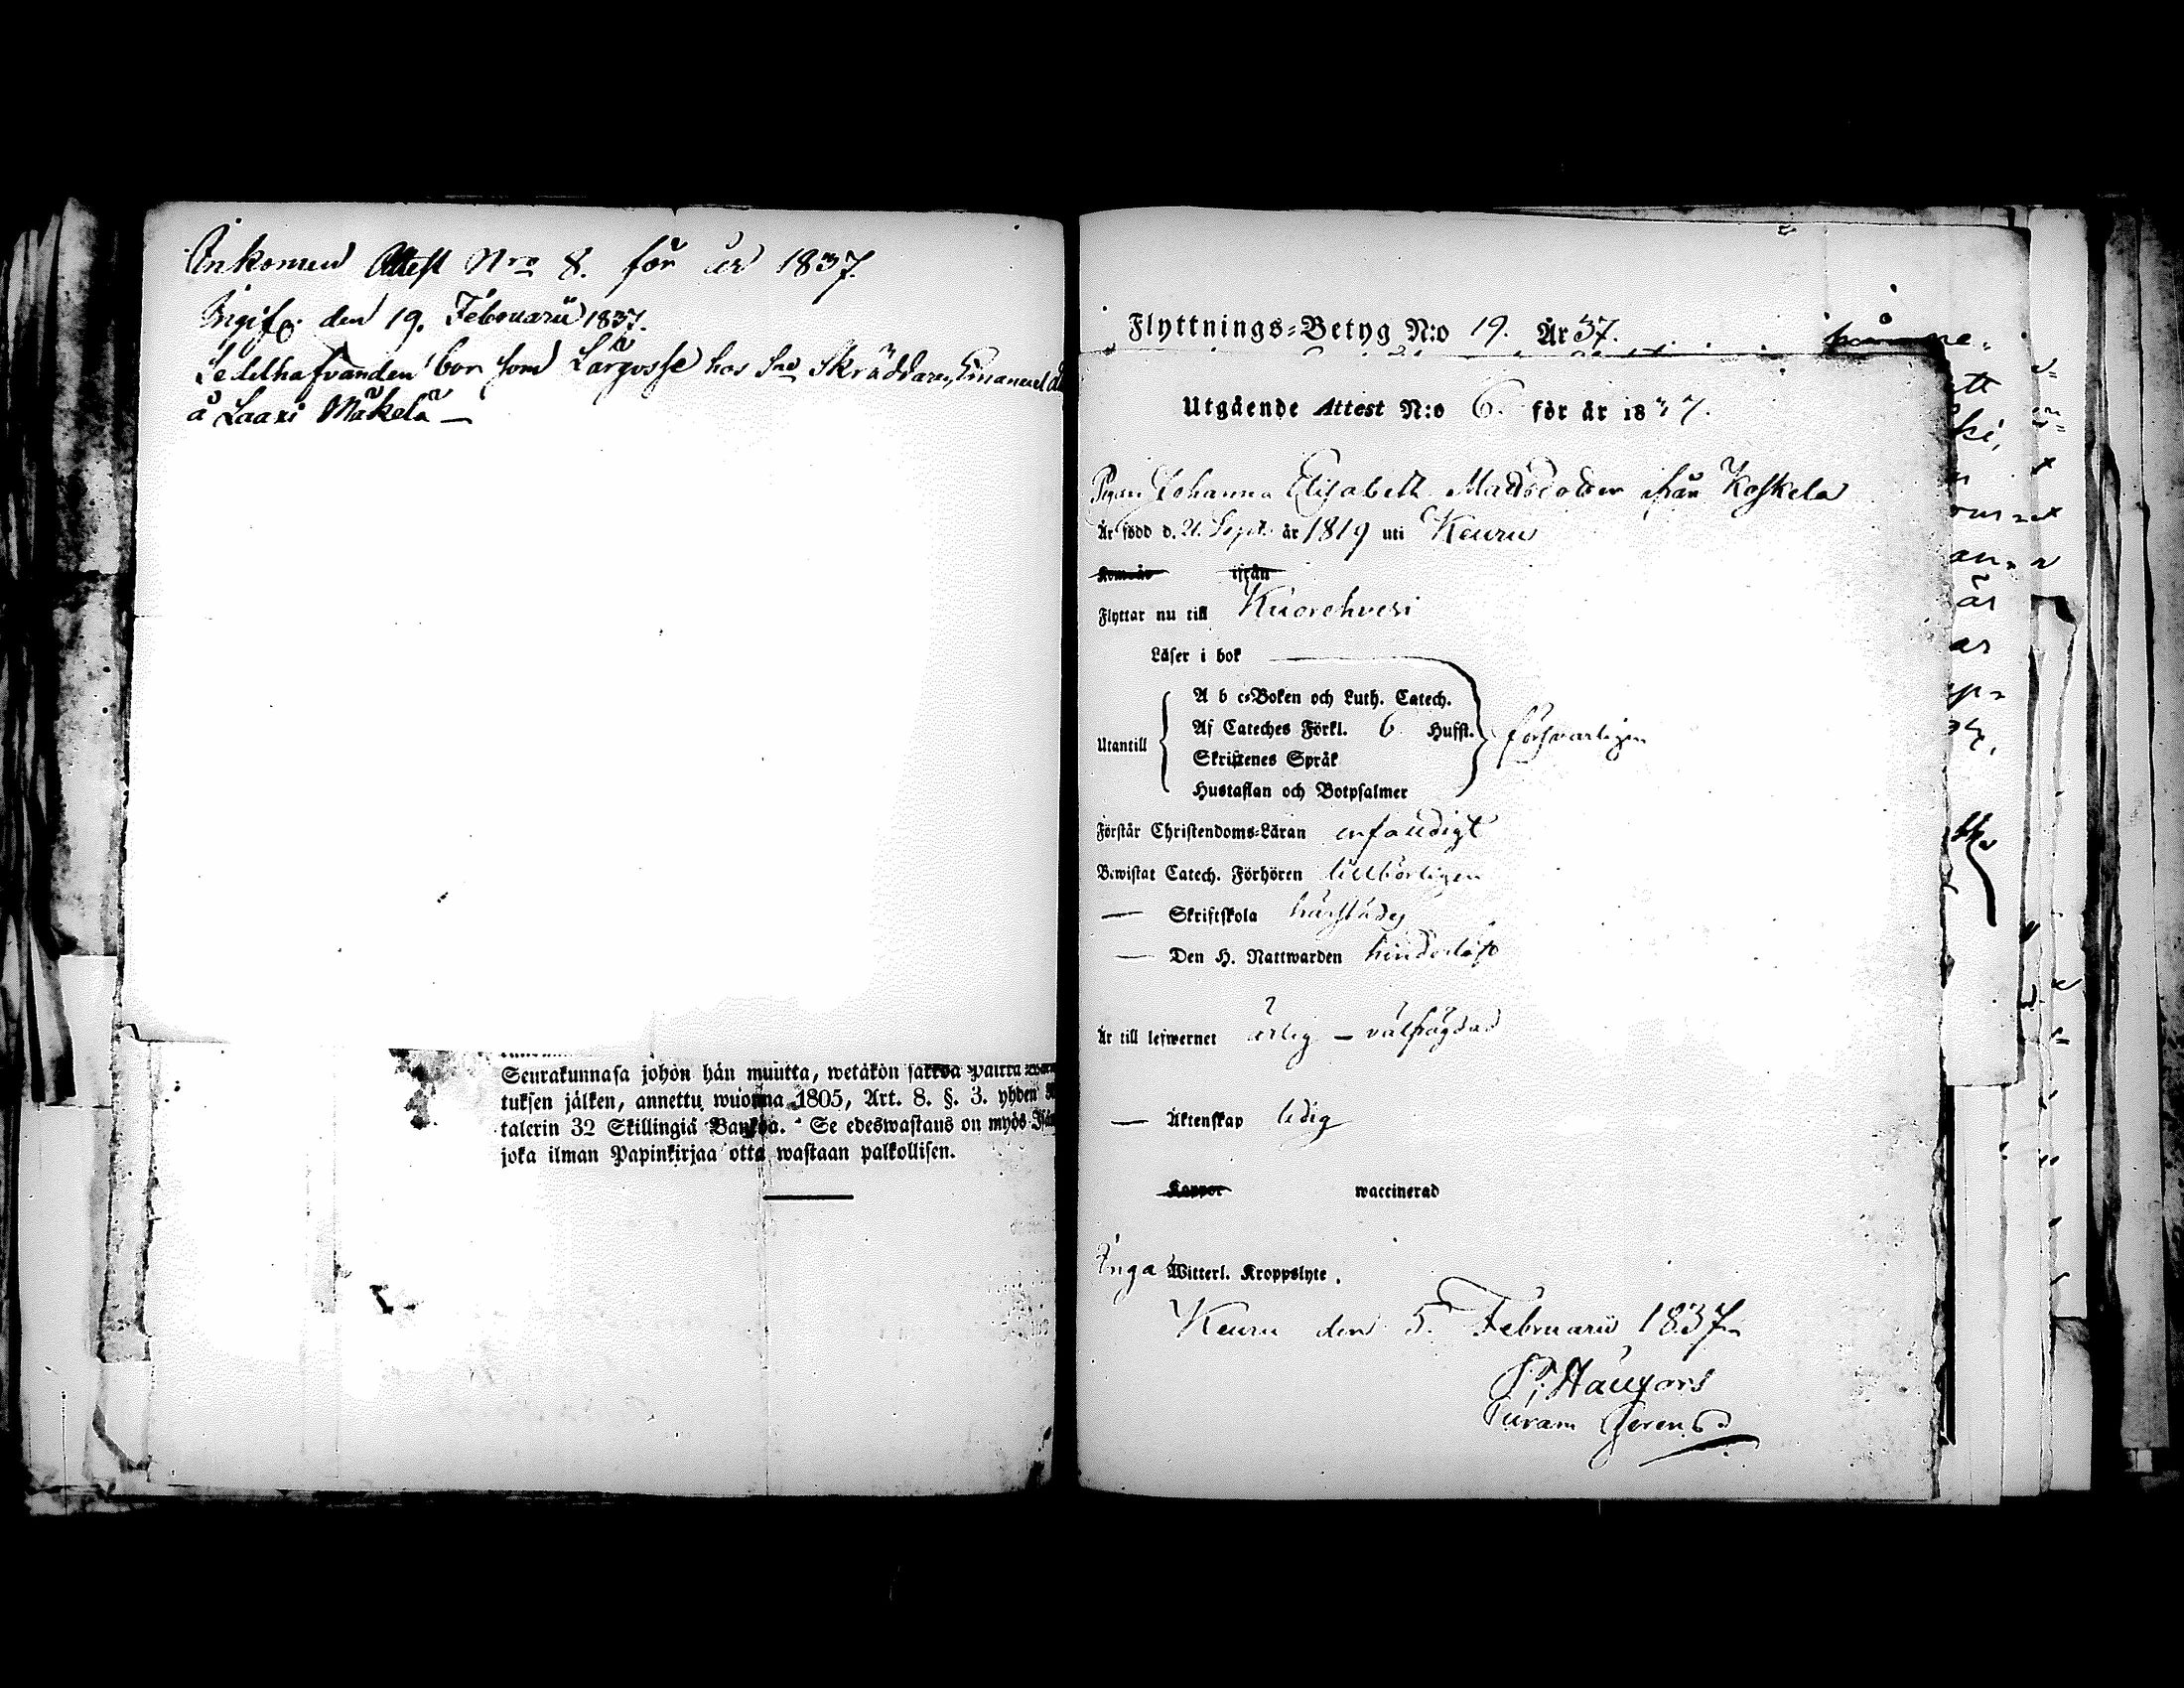 Ankommen Attest Nro 8. för år 1837.
Ingifv. den 19. Februarii 1837.
Sedelhafvanden bor som Lärgosse hos Sne Skräddaren Emanuel
å Laaxi Mäkelä —
Seurakunnasa johon hän muutta, wetäkön sakkoa
tuksen jälken, annettu wuonna 1805, Art. 8. §. 3. yhden
talerin 32 Skillingiä Bankoa. Se edeswastaus on myös
joka ilman Papinkirjaa otta wastaan palkollisen.
Flyttnings-Betyg N:o 19. År 37.
Utgående Attest N:o 6. för år 1837.
Pigan Johanna Elisabeth Mattsdotter ifrån Koskela
Är född d. 21. Sept. år 1819 uti Keuru
ifrån
Flyttar nu till Kuorehvesi
Läser i bok
A b c-Boken och Luth. Catech.
Af Cateches Förkl. 6 Hufst.
Utantill försvarligen
Skriftenes Språk
Hustaflan och Botpsalmer
Förstår Christendoms-Läran enfaldigt
Bewistat Catech. Förhören tillbörligen
— Skriftskola härstädes
— Den H. Nattwarden hinderlöst
Är till lefwernet ärlig — välfrägdad
— Äktenskap ledig
Koppor waccinerad
Inga Witterl. Kroppslyte.
Keuru den 5. Februarii 1837